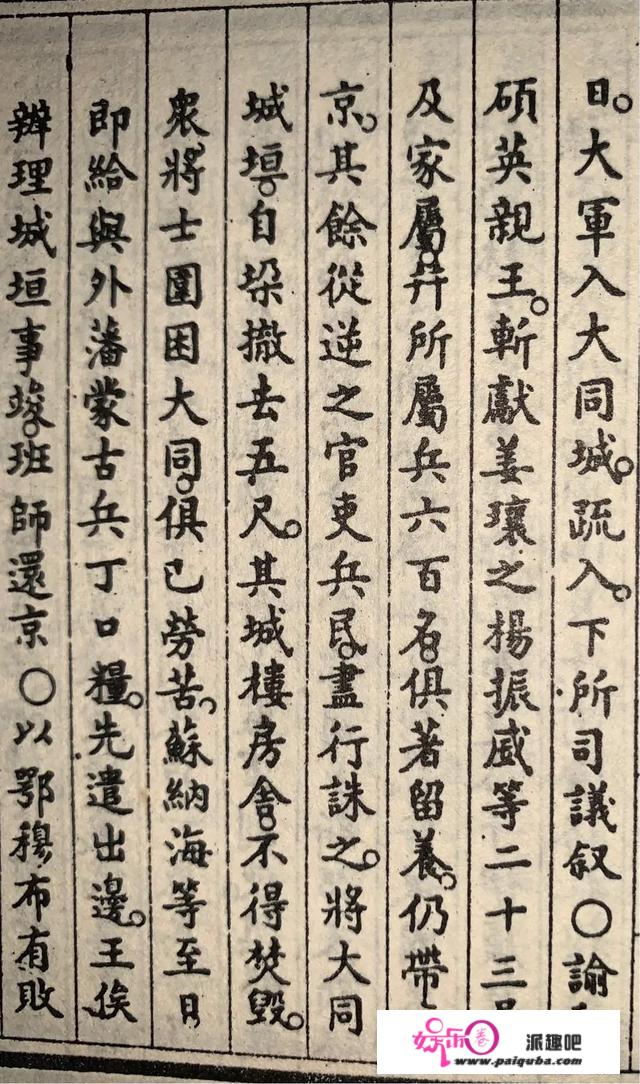 日。大軍入大同城。疏入。下所司議叙○諭
碩英親王。斬獻姜瓖之楊振威等二十三
及家屬。幷所屬兵六百名。俱著留養。仍帶
京。其餘從逆之官吏兵民。盡行誅之。將大同
城垣。自垛撤去五尺。其城樓房舍。不得焚毀。
衆將士圍困大同。俱已勞苦。蘇納海等至日
即給與外藩蒙古兵丁口糧。先遣出邊。王俟
辦理城垣事竣。班師還京○以鄂穆布有敗
娱乐圈 派趣吧
www.paiquba.com